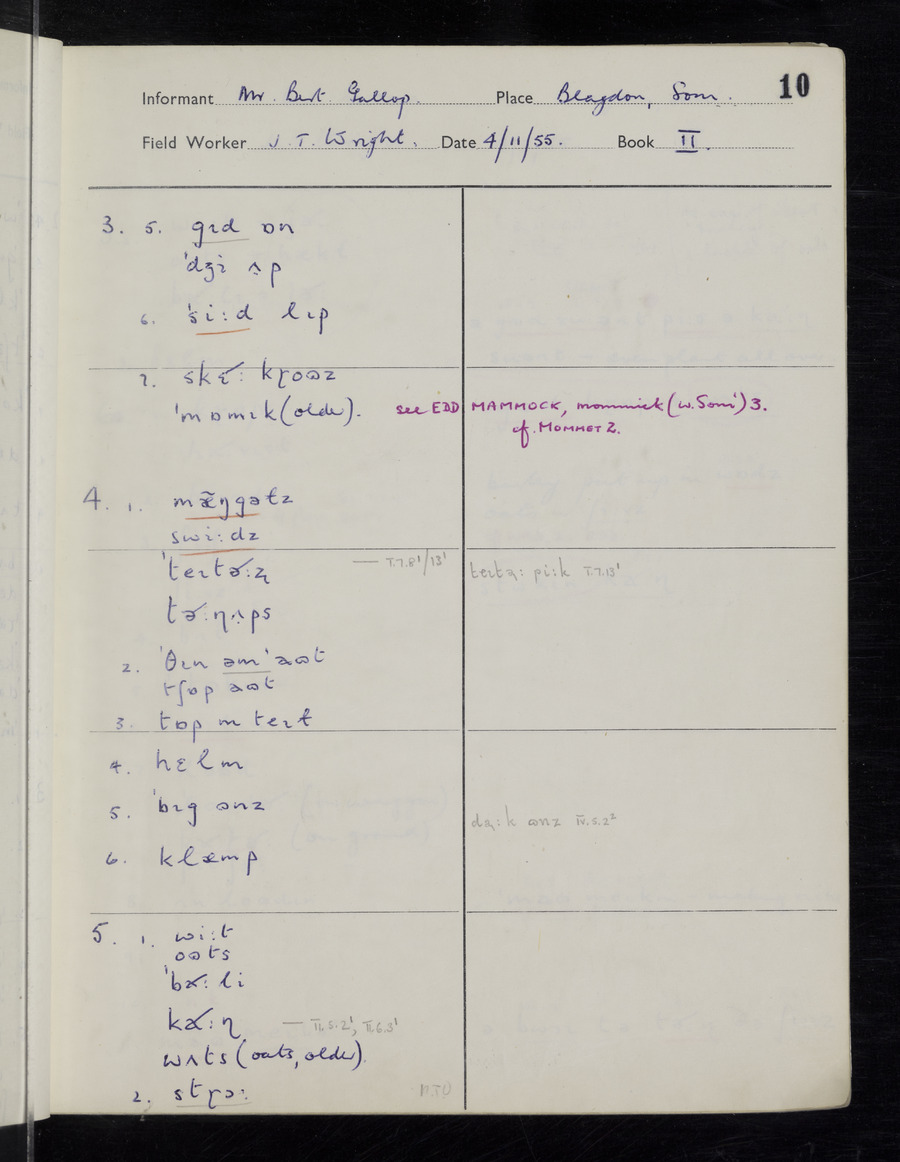 10
Informant Mr. Bert Gallop. Place Blagdon, Som.
Field Worker J. T. Wright. Date 4/11/55. Book II.
3. 5. gɪd ɒn
ˈdʒi ʌp
6. ˈsi:d lɪp
7. skɛ˞: kɽoʊz
ˈmɒmɪk (older). see EDD MAMMOCK, mommick (w. Som) 3.
cf. MOMMET 2.
4. 1. mæ̃ŋgəlz
swi:dz
ˈteɪtə˞:ɀ — T.7.8ˡ/13ˡ teɪtɀ: pi:k T.7.13ˡ
tə˞:ɳʌps
2. ˈθɪn əm ˈaʊt
tʃɒp aʊt
3. tɒp m teɪl
4. hɛlm
5. ˈbɪg ənz
6. klæmp
5. 1. wi:t
oəts
ˈba˞:li
ka˞:ɳ — II.5.2ˡ, II.6.3ˡ
wʌts (oats, older).
2. stɽɔ: